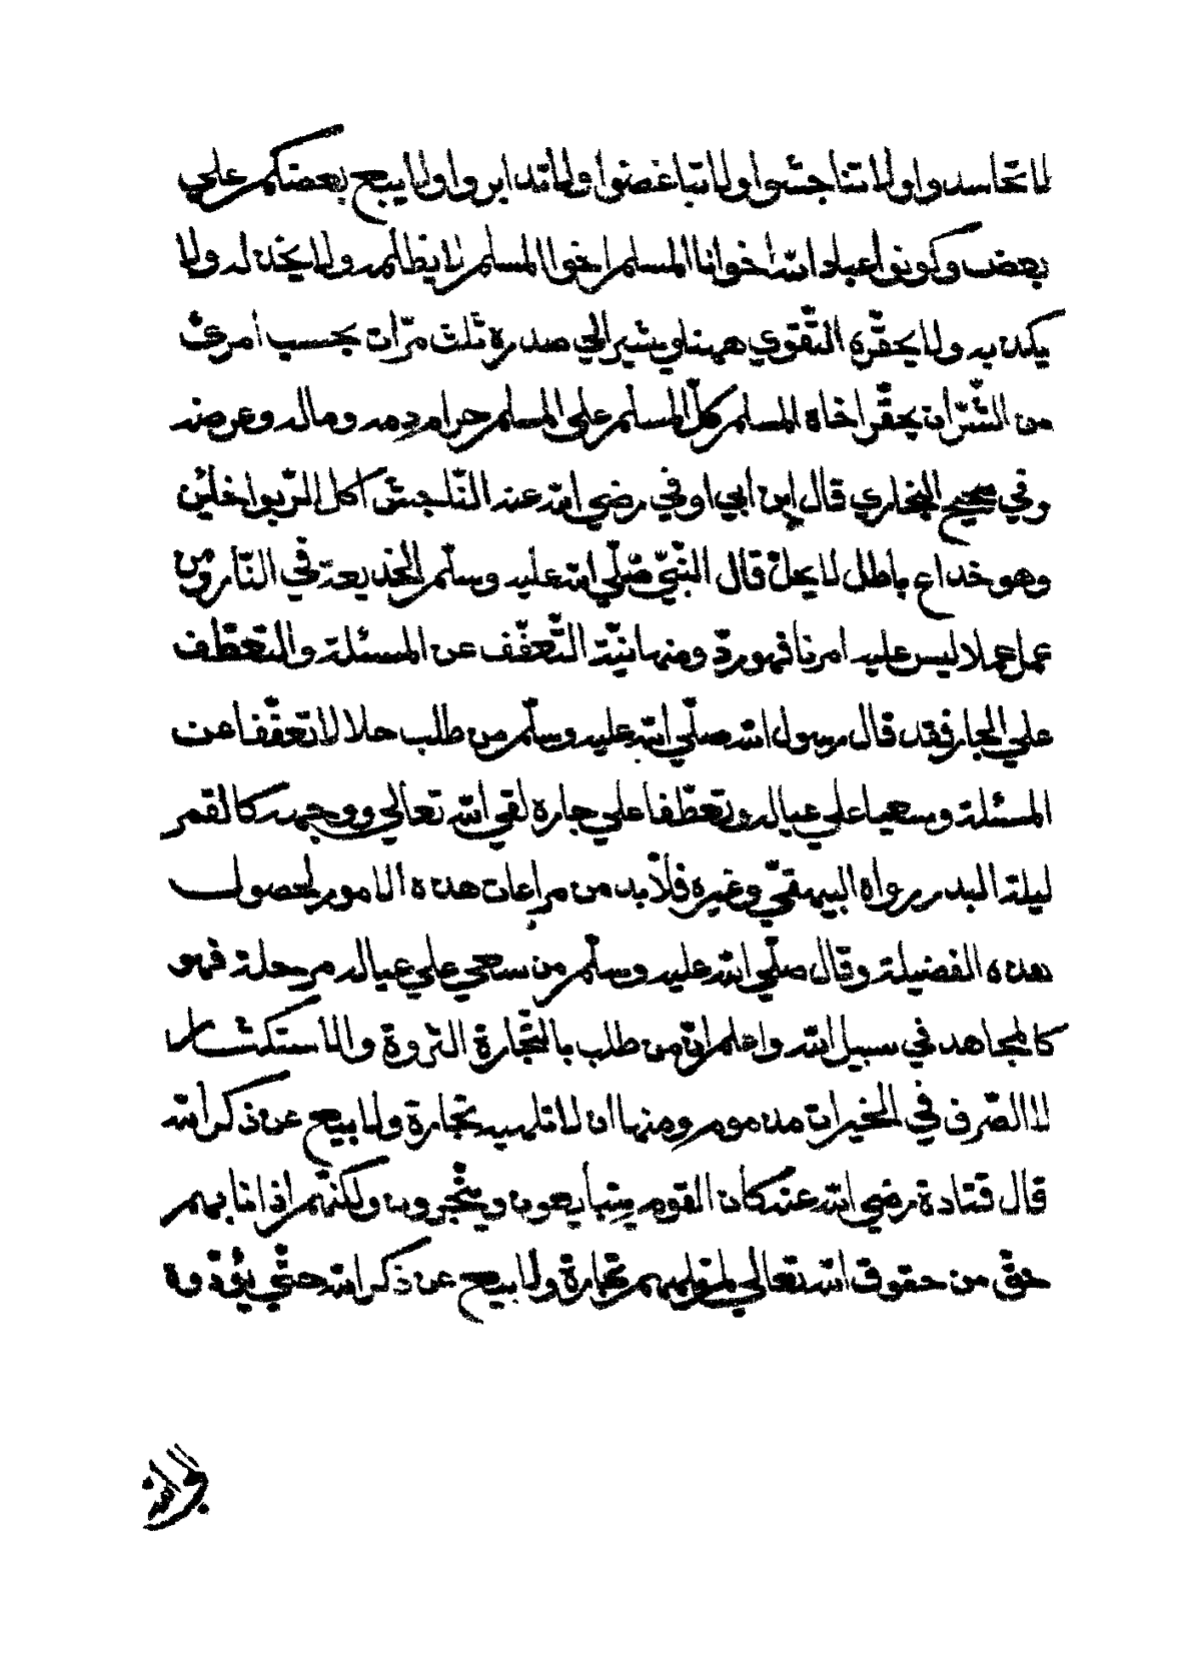 لا تحاسدوا ولا تناجشوا ولا تباغضوا ولا تدابروا ولا يبيع بعضكم علي
بعض وكونوا عباد الله اخوانا المسلم اخوا المسلم لا يظلمه ولا يخذله ولا
يكذبه ولا يحقّره التّقوي ههنا ويشير الي صدره ثلث مرّات بحسب امرئ
من الشّرّ ان يحقّر اخاه المسلم كلّ المسلم علي المسلم حرام دمه وماله وعرضه
وفي صحيح البخاري قال ابن ابي اوفي رضي الله عنه النّاجش آكل الرّبوا خائن
وهو خداع باطل لا يحلّ قال النّبيّ صلّي الله عليه وسلّم الخذيعة في النّار ومن
عمل عملا ليس عليه امرنا فهو ردّ ومنها نيّة التّعفّف عن المسئلة والتعطّف
علي الجار فقد قال رسول الله صلّي الله عليه وسلّم من طلب حلالا تعفّفا عن
المسئلة وسعيا علي عياله وتعطّفا علي جاره لقي الله تعالي ووجهه كالقمر
ليلة البدر رواه البيهقيّ وغيره فلا بد من مراعات هذه الامور لحصول
هذه الفضيلة وقال صلّي الله عليه وسلّم من سعي علي عياله من حلة فهو
كالمجاهد في سبيل الله واعلم انّ من طلب بالتّجارة الثروة والاستكثار
لا الصّرف في الخيرات مذموم ومنها ان لا تلهيه تجارة ولا بيع عن ذكر الله
قال قتادة رضي الله عنه كان القوم يتبايعون ويتّجرون ولكنّهم اذا نابهم
حقّ من حقوق الله تعالي لم تلههم تجارة ولا بيع عن ذكر الله حتّي يؤدّوه